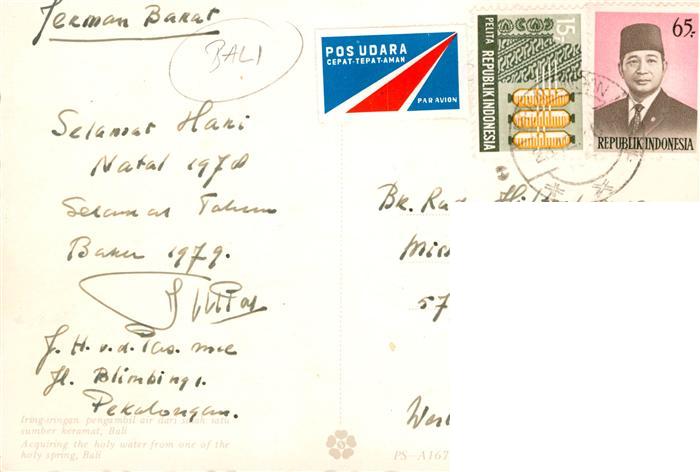 Jerman Barat
BALI
POS UDARA
CEPAT-TEPAT-AMAN
PAR AVION
15.-
PELITA
REPUBLIK INDONESIA
65.-
REPUBLIK INDONESIA
Selamat Hari
Natal 1978
Selamat Tahun
Baru 1979.
J. H. v. d. Pas.
Jl. Blimbing 1.
Pekalongan.
Bk.
57
Iring-iringan pengambil air dari salah satu
sumber keramat, Bali
Acquiring the holy water from one of the
holy spring, Bali
PS-A167